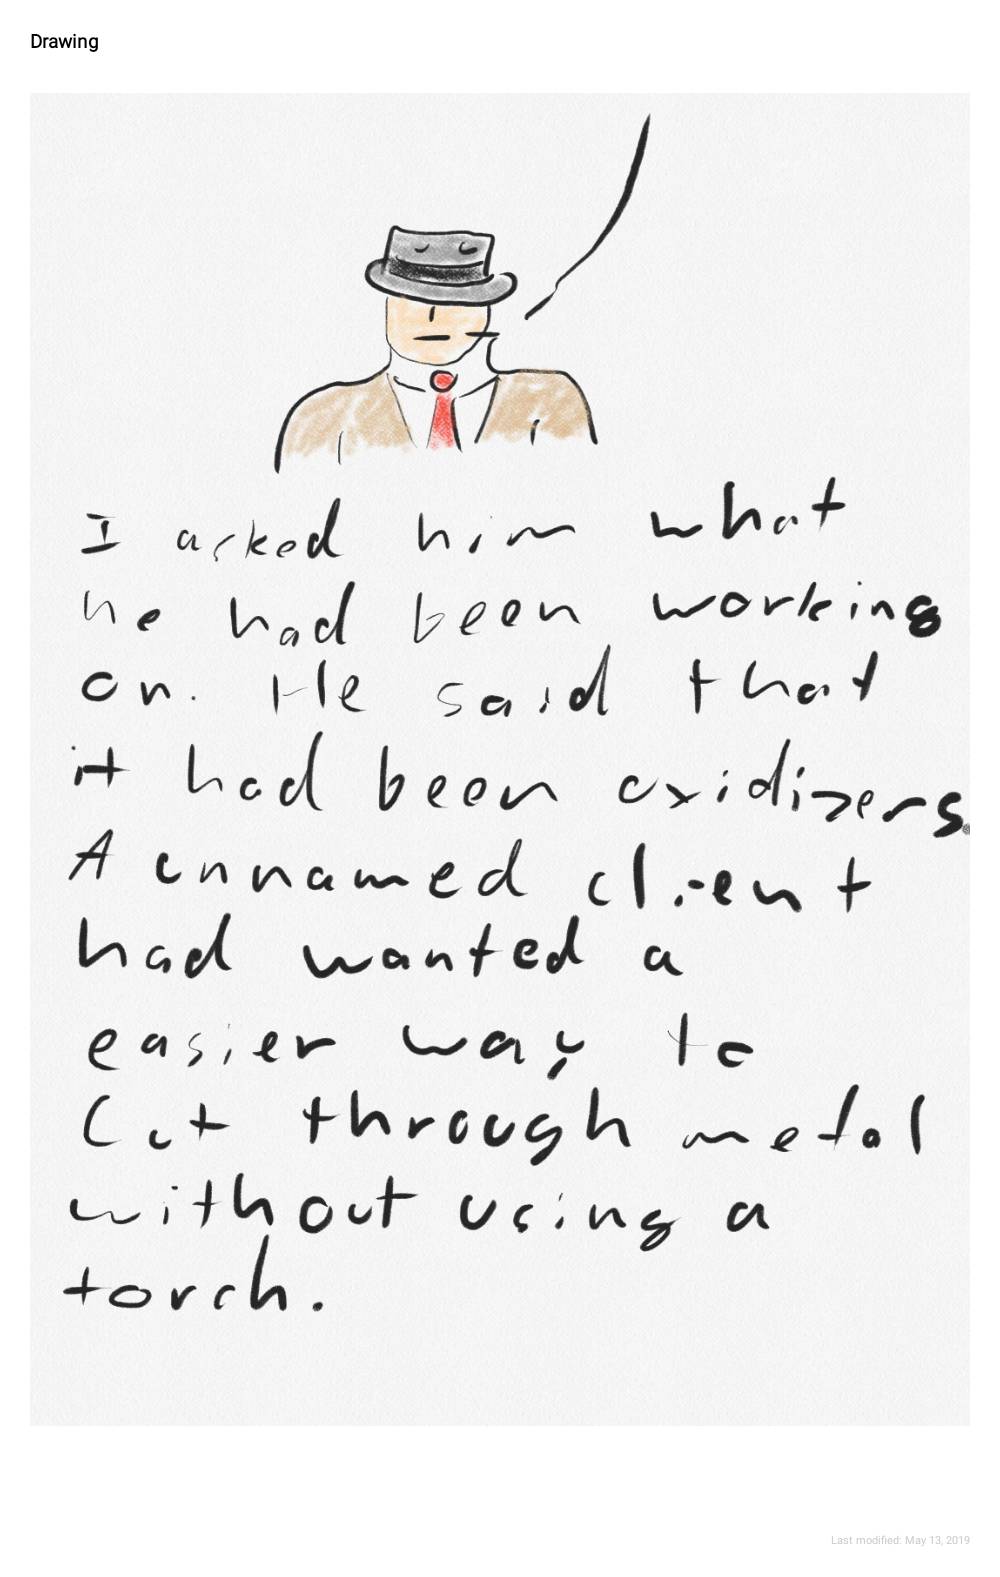 Drawing
I asked him what
he had been working
on. He said that
it had been oxidizers.
A unnamed client
had wanted a
easier way to
Cut through metal
without using a
torch.
Last modified: May 13, 2019